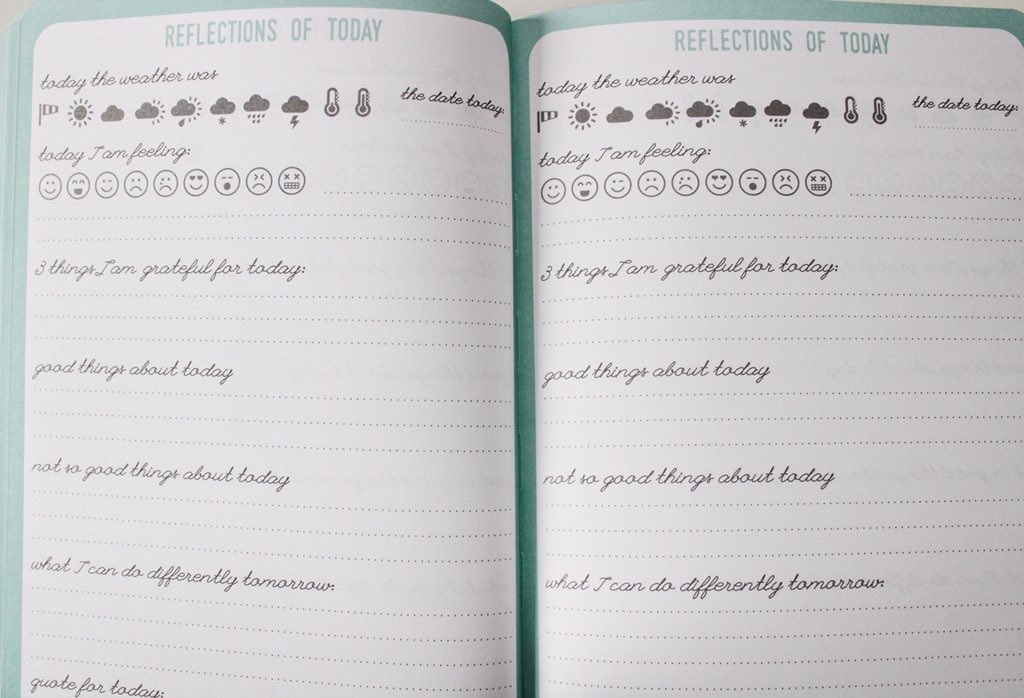 REFLECTIONS OF TODAY
today the weather was
the date today:
today I am feeling:
3 things I am grateful for today:
good things about today
not so good things about today
what I can do differently tomorrow:
quote for today:
REFLECTIONS OF TODAY
today the weather was
the date today:
today I am feeling:
3 things I am grateful for today:
good things about today
not so good things about today
what I can do differently tomorrow: